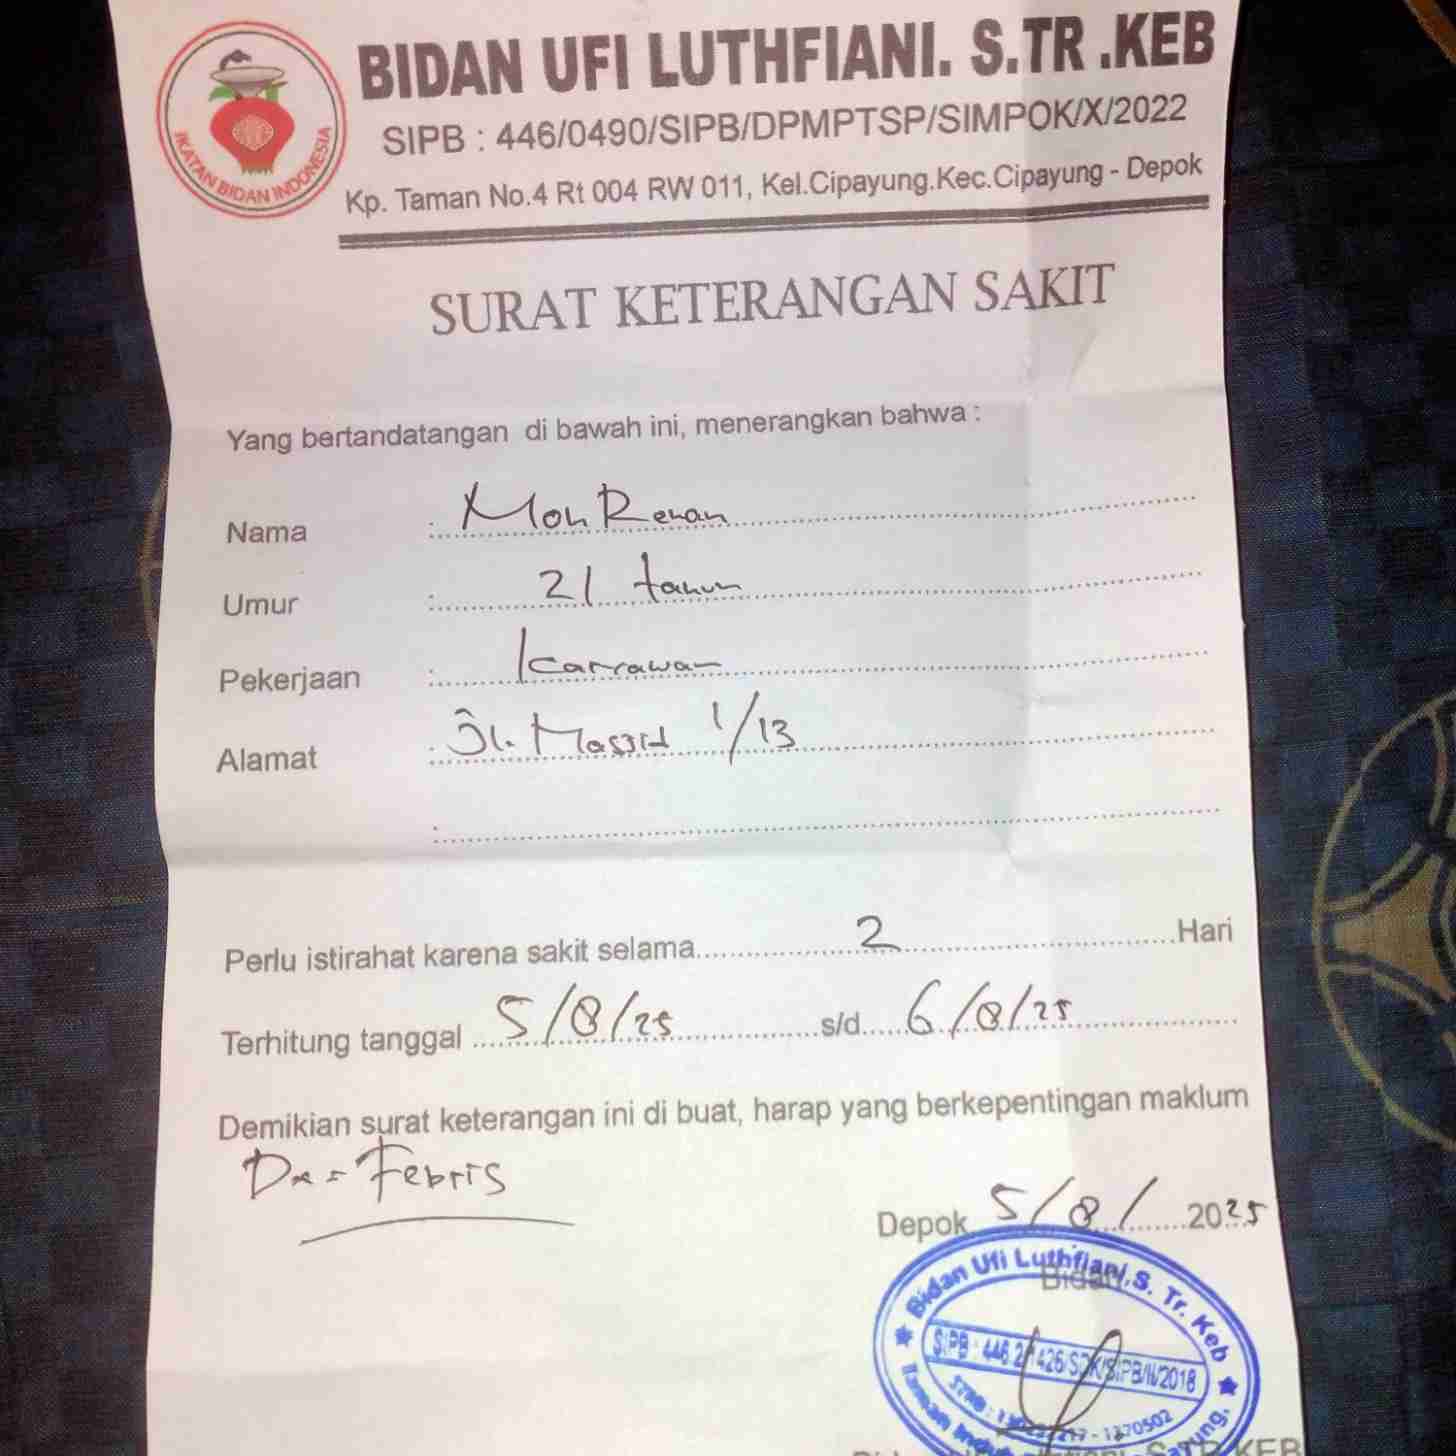 IKATAN BIDAN INDONESIA
BIDAN UFI LUTHFIANI. S.TR .KEB
SIPB : 446/0490/SIPB/DPMPTSP/SIMPOK/X/2022
Kp. Taman No.4 Rt 004 RW 011, Kel.Cipayung.Kec.Cipayung - Depok
SURAT KETERANGAN SAKIT
Yang bertandatangan di bawah ini, menerangkan bahwa :
Nama : Moh Renan
Umur : 21 tahun
Pekerjaan : Karyawan
Alamat : Jl. Masjid 1/13
:
Perlu istirahat karena sakit selama 2 Hari
Terhitung tanggal 5/8/25 s/d 6/8/25
Demikian surat keterangan ini di buat, harap yang berkepentingan maklum
Dx = Febris
Depok 5/8/ 2025
Bidan
Bidan Ufi Luthfiani,S. Tr. Keb
SIPB : 446.2/1426/SDK/SIPB/II/2018